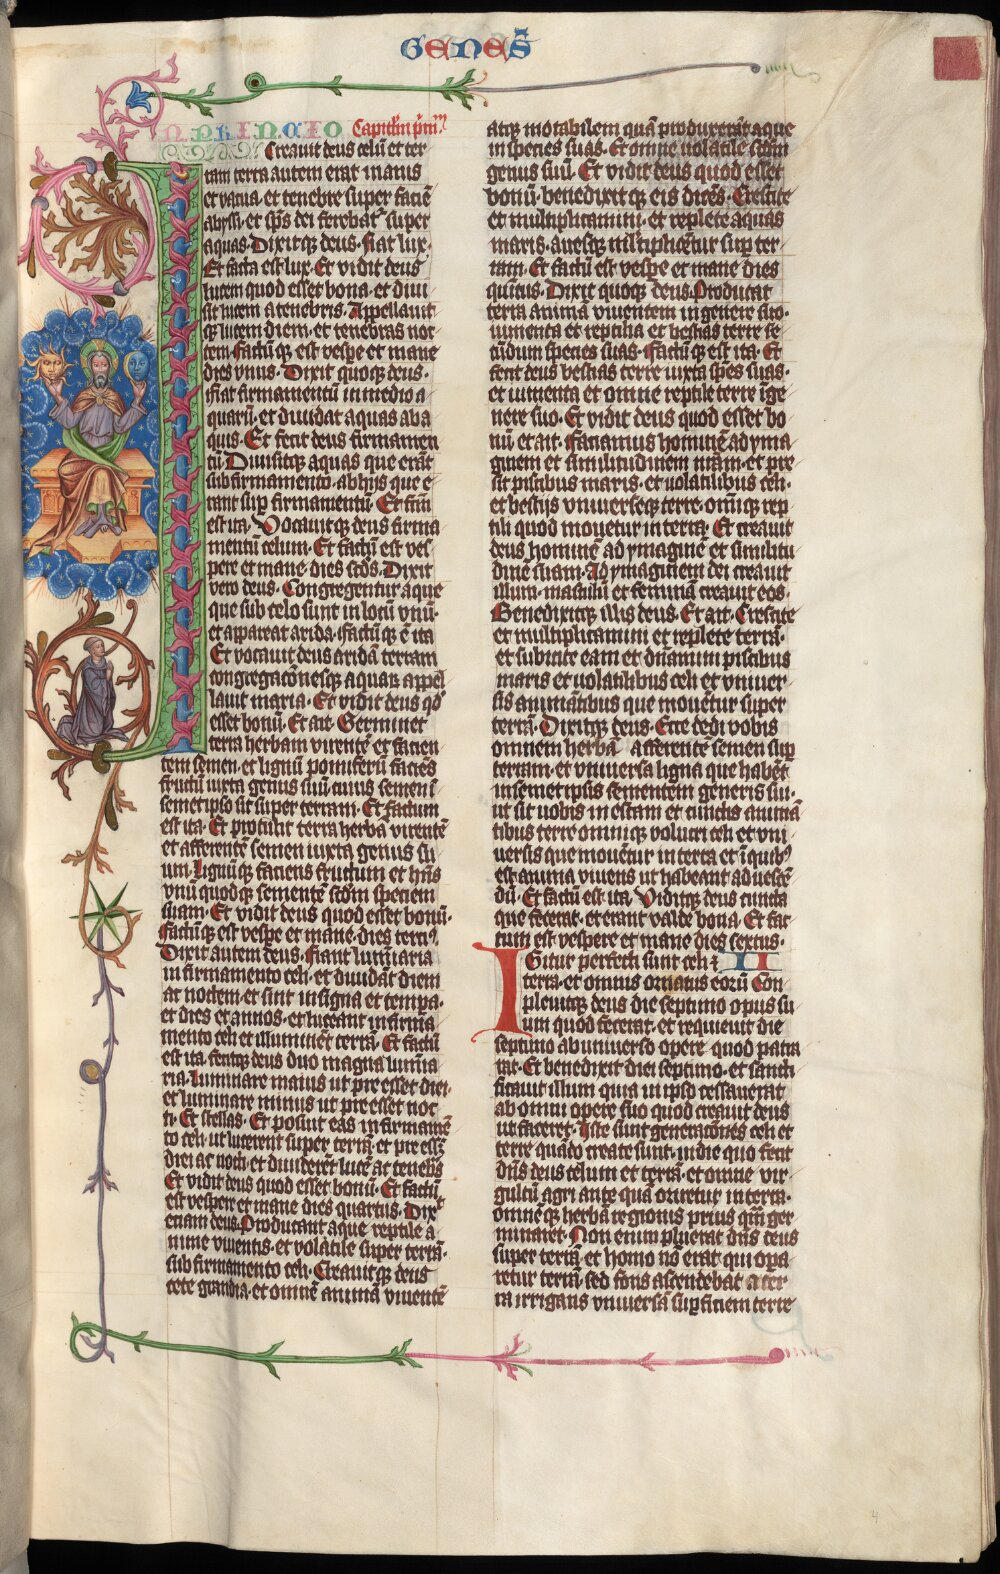 GENES̄
IN PRINCIPIO Capitlm̄ prim̄
Creauit deus celū et ter
ram terra autem erat inanis
et vacua, et tenebre super faciē
abyssi· et sp̄s dei ferebat᷑ super
aquas· Dixitqꝫ deus· fiat lux·
Et facta est lux· Et vidit deus
lucem quod esset bona· et diui
sit lucem a tenebris· Appellauit
qꝫ lucem diem· et tenebras noc
tem· factū qꝫ est vespe et mane
dies vnus· Dixit quoqꝫ deus·
ffiat firmamentū in medio a
quarū· et diuidat aquas aba
quis· Et fecit deus firmamen
tū Diuisitqꝫ aquas que erāt
sub firmamento· ab hijs que e
rant sup firmamentū· Et fc̄m
est ita· Vocauitqꝫ deus firma
mentū celum· Et factū est ves
pere et mane dies scd̄s· Dixit
vero deus· Congregentur aque
que sub celo sunt in locū vnū·
et appareat arida· ffactū qꝫ ē ita
Et vocauit deus aridā terram
congregacōnesqꝫ aquaꝝ appel
lauit maria· Et vidit deus qd̄
esset bonū· Et ait· Germinet
terra herbam virentē et facien
tem semen· et lignū pomiferū faciēs
fructū iuxta genus suū cuius semen ī
semetipso sit super terram· Et factum
est ita· Et protulit terra herbā virentē
et afferentē semen iuxta genus su
um· Lignū qꝫ faciens fructum et hn̄s
vnū quodqꝫ sementē scd̄m speciem
suam· Et vidit deus quod esset bonū·
ffactū qꝫ est vespe et mane· dies terci᷒·
Dixit autem deus· Fiant luminaria
in firmamento celi· et diuidāt diem
ac noctem· et sint in signa et tempa·
et dies et annos· et luceant in firma
mento celi et illuminēt terrā· Et factū
est ita· fecitqꝫ deus duo magna lumīa
ria· Luminare maius ut pre esset diei·
et luminare minus ut pre esset noc
ti· Et stellas· Et posuit eas in firmamē
to celi· ut lucerent super terrā· et pre essꝫ
diei ac nocti· et diuiderēt lucē ac tenebs̄
Et vidit deus quod esset bonū· Et factū
est vespere et mane dies quartus· Dixᵗ
eciam deus· Producant aque reptile a
nime viuentis· et volatile super terrā·
sub firmamento celi· Creauitqꝫ deus
cete grandia· et omnē animā viuentē
atqꝫ motabilem quā produxerāt aque
in species suas· Et omne uolatile scd̄m
genus suū· Et vidit deus quod esset
bonū· benedixit qꝫ eis dices· Crescite
et multiplicamini· et replete aquas
maris· auesqꝫ m̄ltiplicētur sup ter
ram· Et factū est vespe et mane dies
quītus· Dixit quoqꝫ deus· Producat
terra animā viuentem in genere suo·
iumenta et reptilia et bestias terre se
cūdum species suas· ffactū qꝫ est ita· Et
fecit deus bestias terre iuxta sp̄es suas·
et iumenta et omne reptile terre ī ge
nere suo· Et vidit deus quod esset bo
nū et ait· ffaciamus hominē ad yma
ginem et similitudinem nr̄am· et pre
sit piscibus maris· et uolatilibus celi·
et bestijs vniuerseqꝫ terre· omīqꝫ rep
tili quod mouetur in terra· Et creauit
deus hominē ad ymaginē et similitu
dinē suam· Ad ymaginem dei creauit
illum· masculū et feminā creauit eos·
Benedixitqꝫ illis deus· Et ait· Crescite
et multiplicamini et replete terrā·
et subicite eam et dn̄amini piscibus
maris et uolatilibus celi et vniuer
sis animātibus que mouētur super
terrā· Dixitqꝫ deus· Ecce dedi vobis
omnem herbā afferentē semen sup
terram· et vniuersa ligna que habēt
in semetipsis sementem generis sui·
ut sit uobis in escam et cūnctis animā
tibus terre omniqꝫ volucri celi et vni
uersis que mouētur in terra et ī quib᷒
est anima viuens ut habeant ad uescē
dū· Et factū est ita· Viditqꝫ deus cuncta
que fecerat· et erant valde bona· Et fac
tum est vespere et mane dies sextus·
IGitur perfecti sunt celi ⁊ II
terra· et omnis ornatus eorū Con
pleuitqꝫ deus die septimo opus su
um quod fecerat· et requieuit die
septimo ab uniuerso opere quod patra
rat· Et benedixit diei septimo· et sancti
ficauit illum quia in ipso cessauerat
ab omni opere suo quod creauit deus
ut faceret· Iste sunt generacōnes celi et
terre quādo create sunt· in die quo fecit
dn̄s deus celum et terrā· et omne vir
gultū agri ante quā oriretur in terra·
omnē qꝫ herbā regionis prius qm̄ ger
minaret· Non enim pluerat dn̄s deus
super terrā· et homo nō erat qui opa
retur terrā· sed fons ascendebat a ter
ra irrigans vniuersā supficiem terre
4